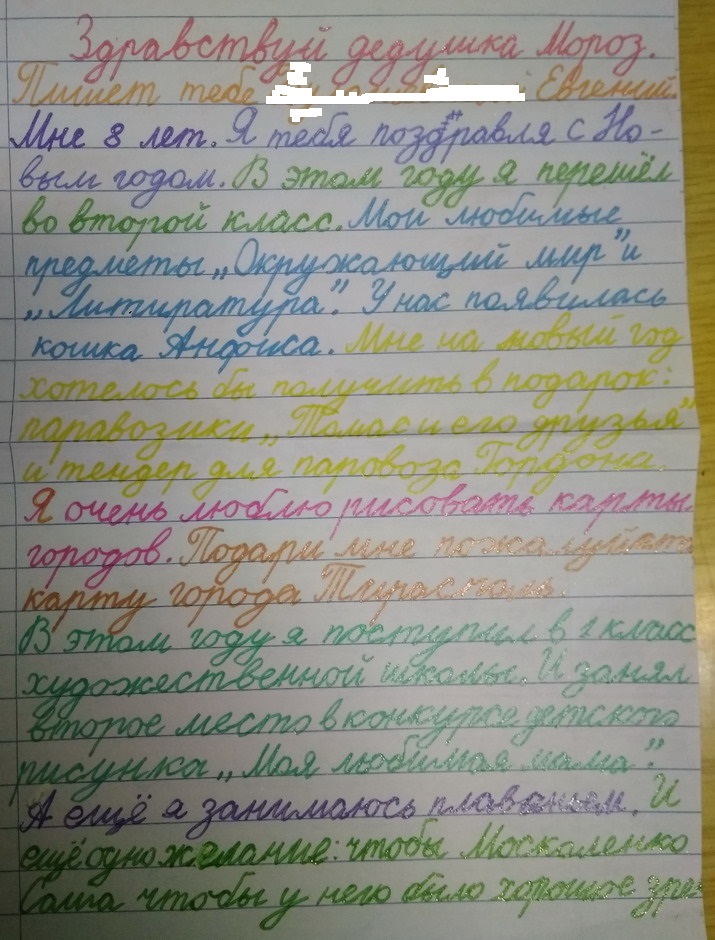 Здравствуй дедушка Мороз.
Пишет тебе Евгений.
Мне 8 лет. Я тебя поздравля с Но-
вым годом. В этом году я перешёл
во второй класс. Мои любимые
предметы „Окружающий мир” и
„Литиратура”. У нас появилась
кошка Анфиса. Мне на новый год
хотелось бы получить в подарок:
паравозики „Томас и его друзья”
и тендер для паровоза Гордона.
Я очень люблю рисовать карты
городов. Подари мне пожалуйста
карту города
В этом году я поступил в 1 класс
художественной школы. И занял
второе место в конкурсе детского
рисунка „Моя любимая мама”.
А ещё я занимаюсь плаваньем. И
ещё одно желание: чтобы Москаленко
Саша чтобы у него было хорошое зре